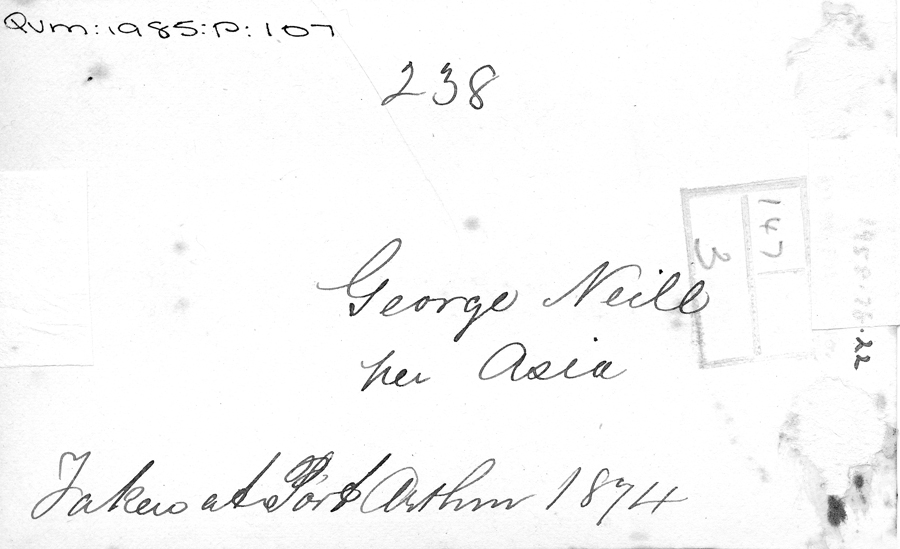 QVM:1985:P:107
238
147
3
George Neill
per Asia
.22
Taken at Port Arthur 1874